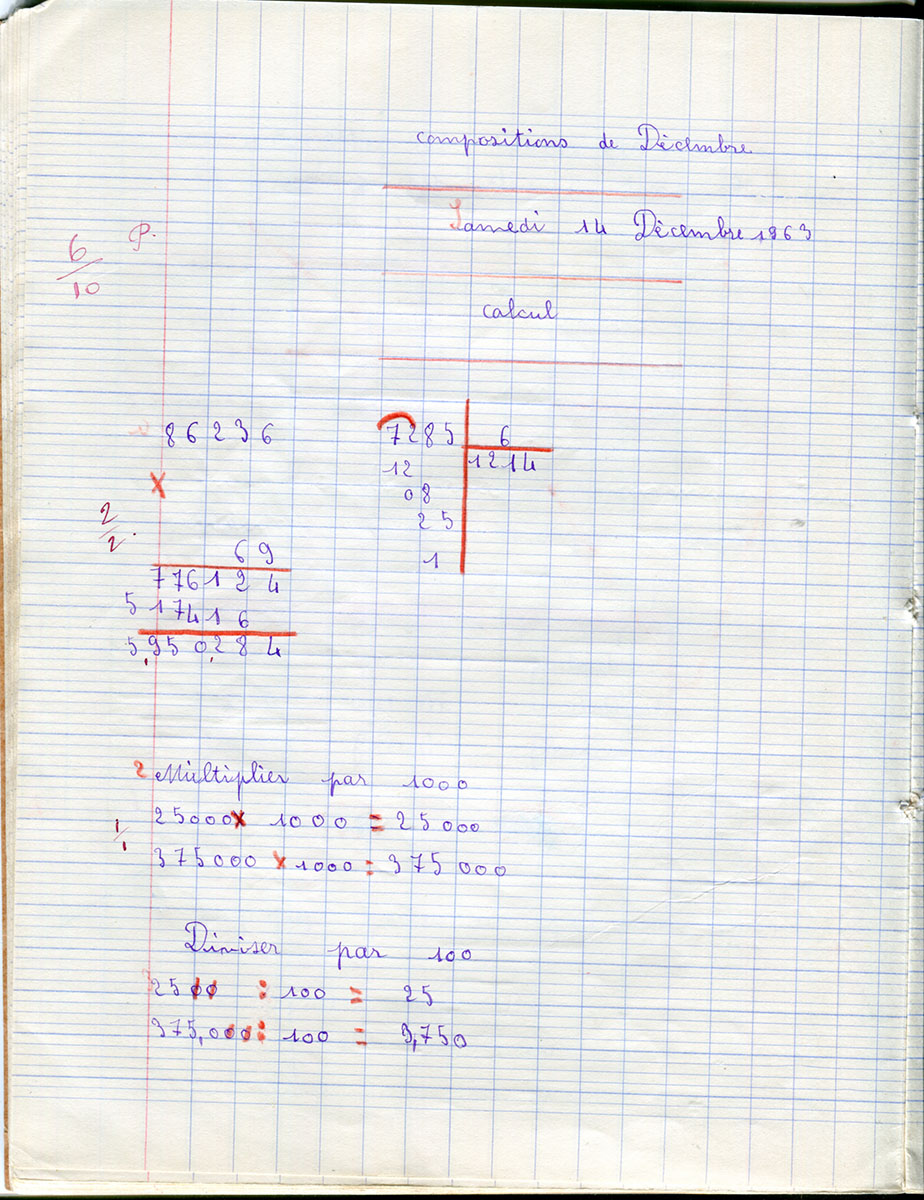 compositions de Décembre
Samedi 14 Décembre 1963
6/10 P.
calcul
86236
×
69
776124
517416
5950284
2/2
7285 6
12 1214
08
25
1
2 Multiplier par 1000
25000 × 1000 = 25000
1/1
375000 × 1000 = 375000
Diviser par 100
2500 : 100 = 25
375,000 : 100 = 3,750